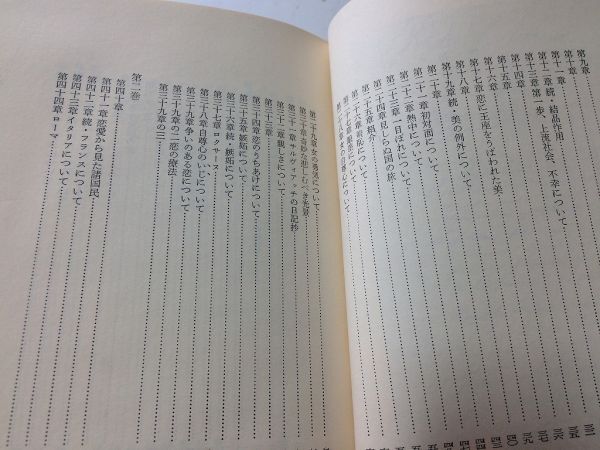 第九章
第十章
第十一章
第十二章 続・結晶作用
第十三章 第一歩、上流社会、不幸について
第十四章
第十五章
第十六章
第十七章 恋に王座をうばわれた美
第十八章
第十九章 続・美の例外について
第二十章
第二十一章 初対面について
第二十二章 熱中について
第二十三章 一目ぼれについて
第二十四章 見しらぬ国の旅
第二十五章 紹介
第二十六章 羞恥について
第二十九章 女の勇気について
第三十章 奇妙な悲しむべき光景
第三十一章 サルヴィアッチの日記抄
第三十二章 親しさについて
第三十三章
第三十四章 恋のうちあけについて
第三十五章 嫉妬について
第三十六章 続・嫉妬について
第三十七章 ロクサーヌ
第三十八章 自尊心のいじについて
第三十九章 争いのある恋について
第三十九章の二 恋の療法
第三十九章の三
第二巻
第四十章
第四十一章 恋愛から見た諸国民
第四十二章 続・フランスについて
第四十三章 イタリアについて
第四十四章 ローマ